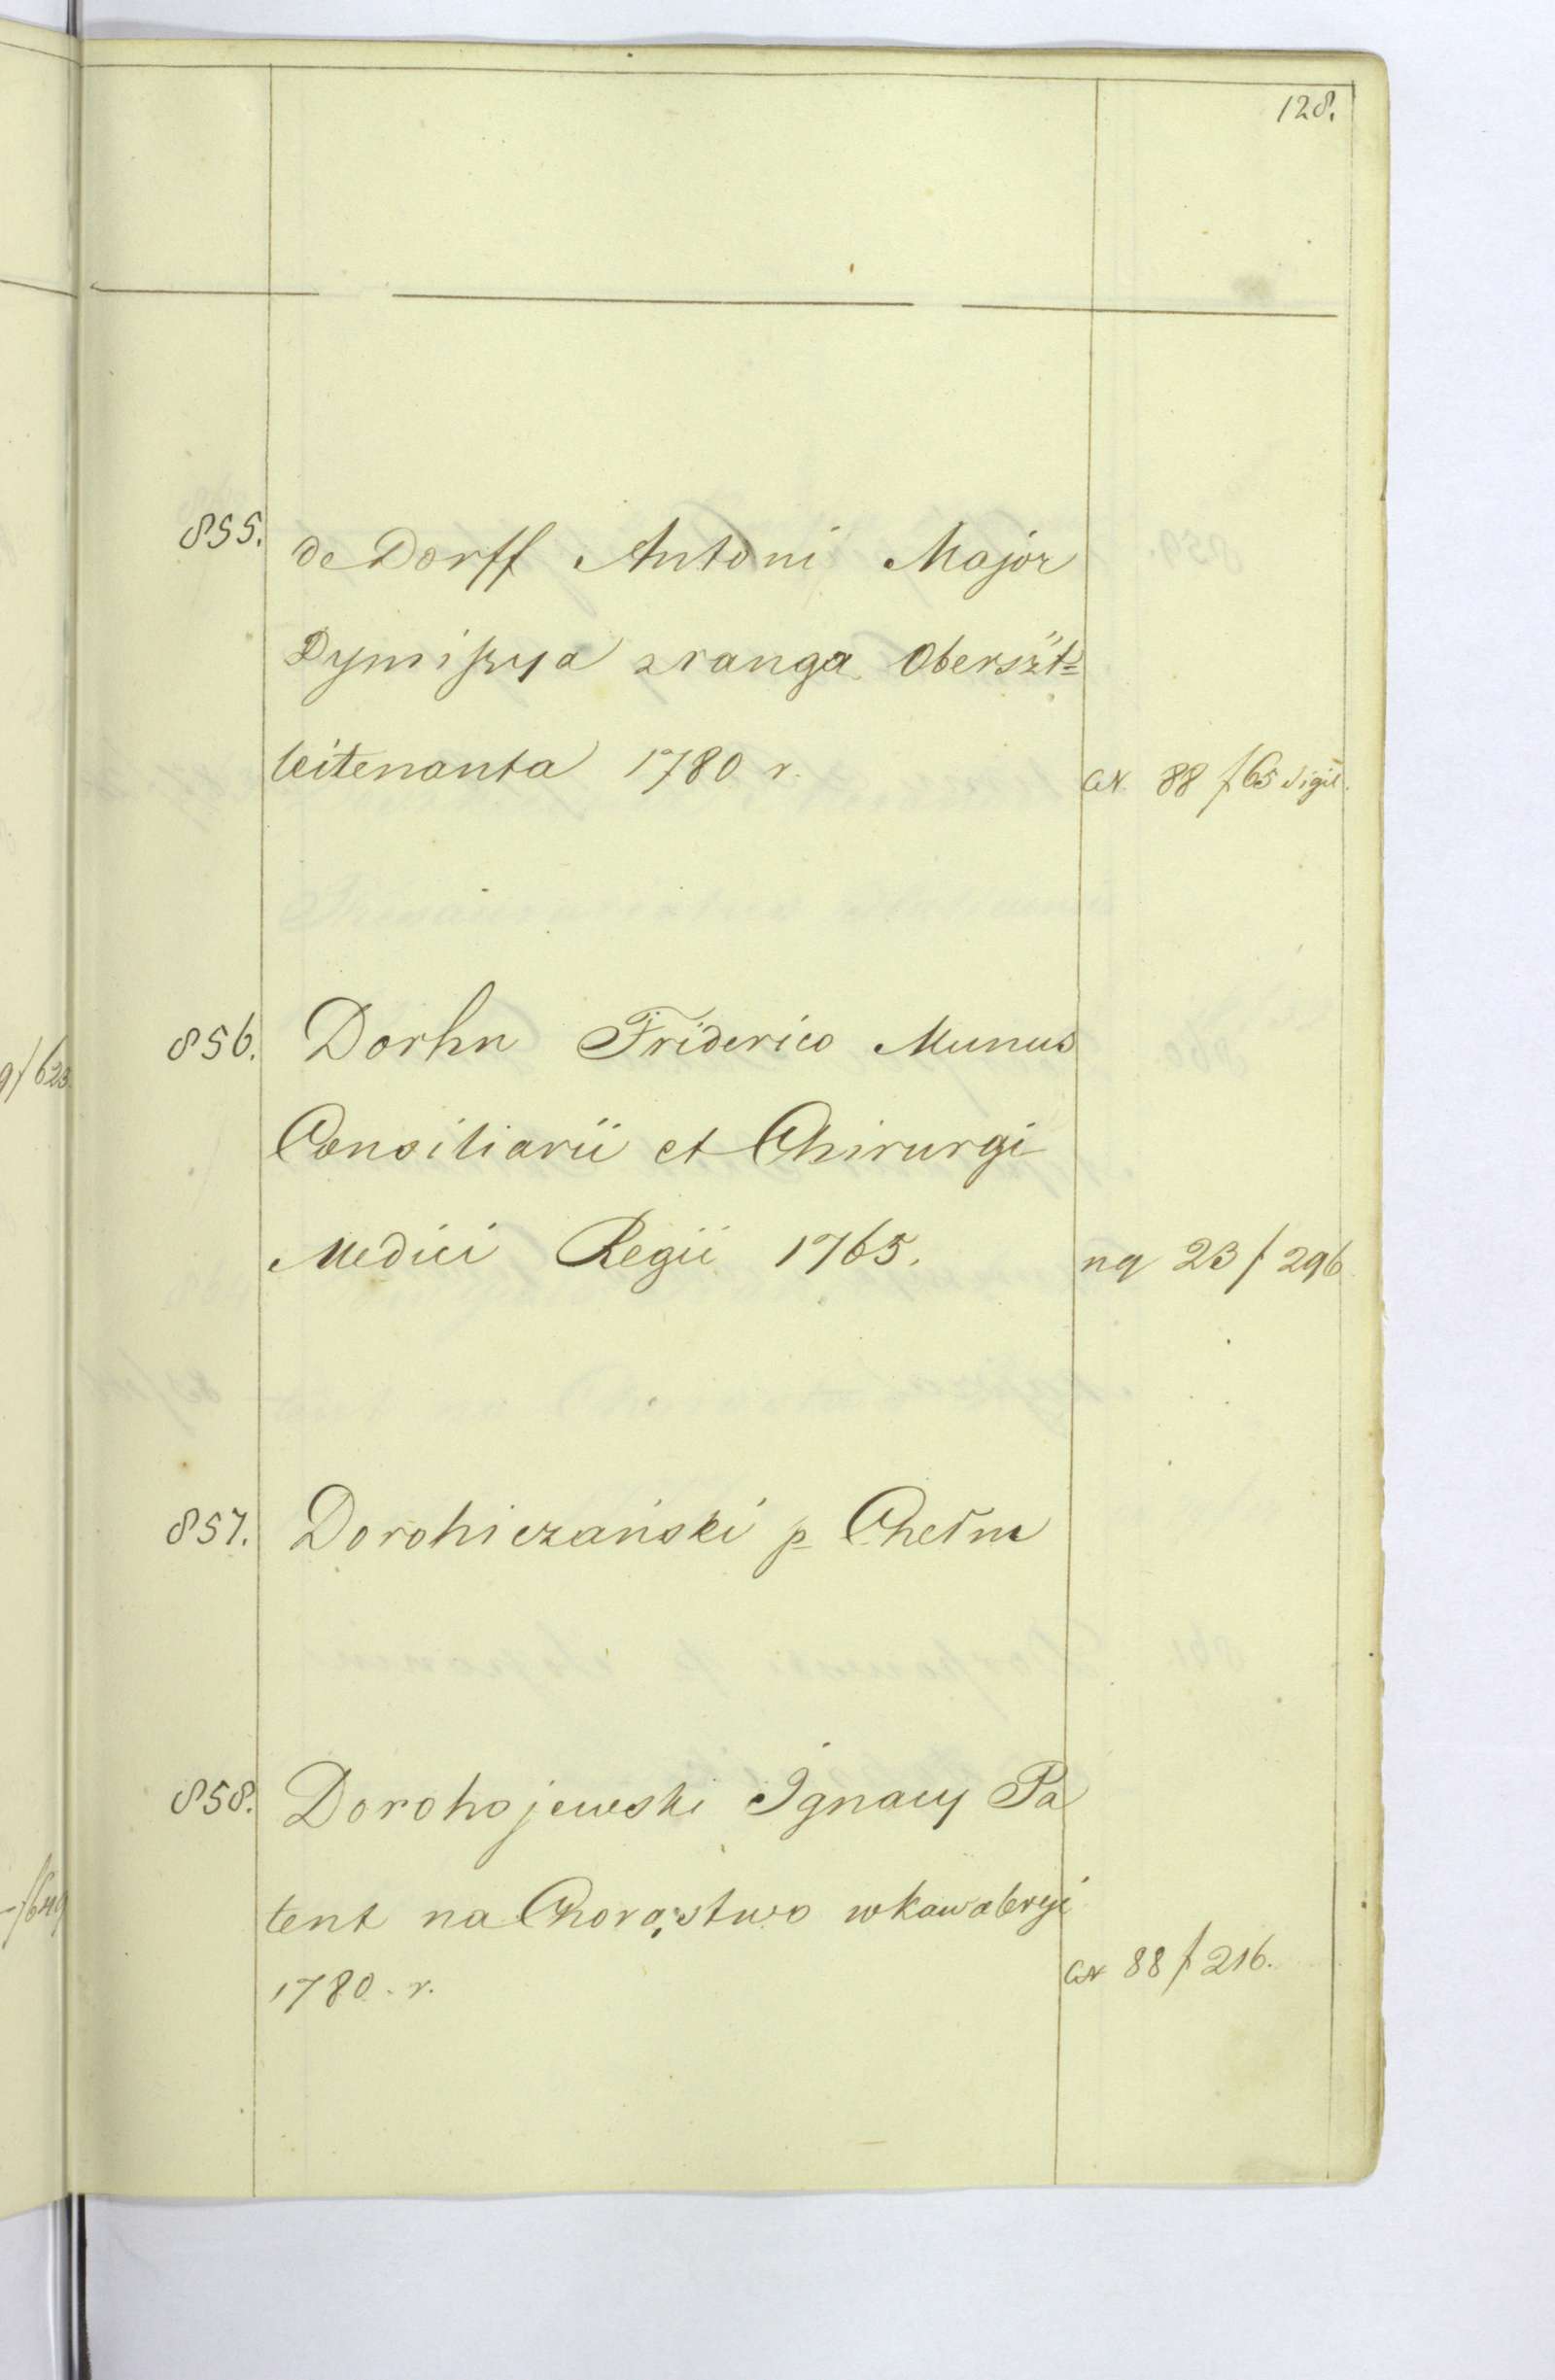 128.
855. de Dorff Antoni Major
Dymissya z rangą Obersżt=
leitenanta 1780 r. CN. 88 f 65 sigil.
856. Dorhn Friderico Munus
Consiliarii et Chirurgi
9/623
Medici Regii 1765. nq 23 f 296
857. Dorohiczański p. Chełm
858. Dorohojewski Ignacy Pa
tent na Chorąstwo w kawaleryi
1780. r. CN 88 f 216.